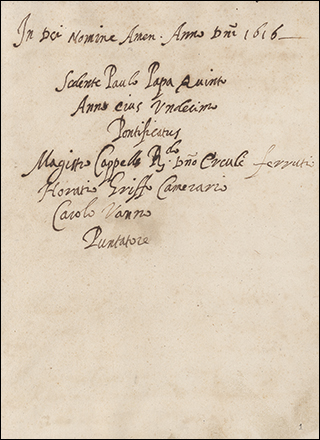 In Dei Nomine Amen. Anno Dñi 1616
Sedente Paulo Papa Quinto
Anno eius Undecimo
Pontificatus
Magistro Cappelle R.do Dño Ercule ferrutio
Horatio Griffo Camerario
Carolo Vanno
Puntatore